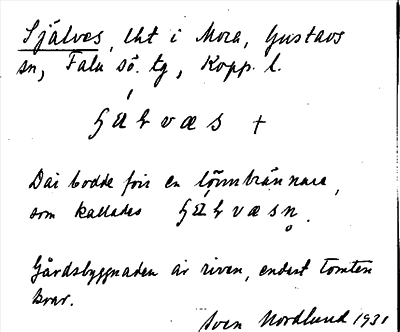 Själves, lht i Mora, Gustavs
sn, Falu sö. tg, Kopp. l.
væs +
Där bodde förr en
som kallades
Gårdsbyggnaden är riven, endast tomten
kvar.
Sven Nordlund 1931